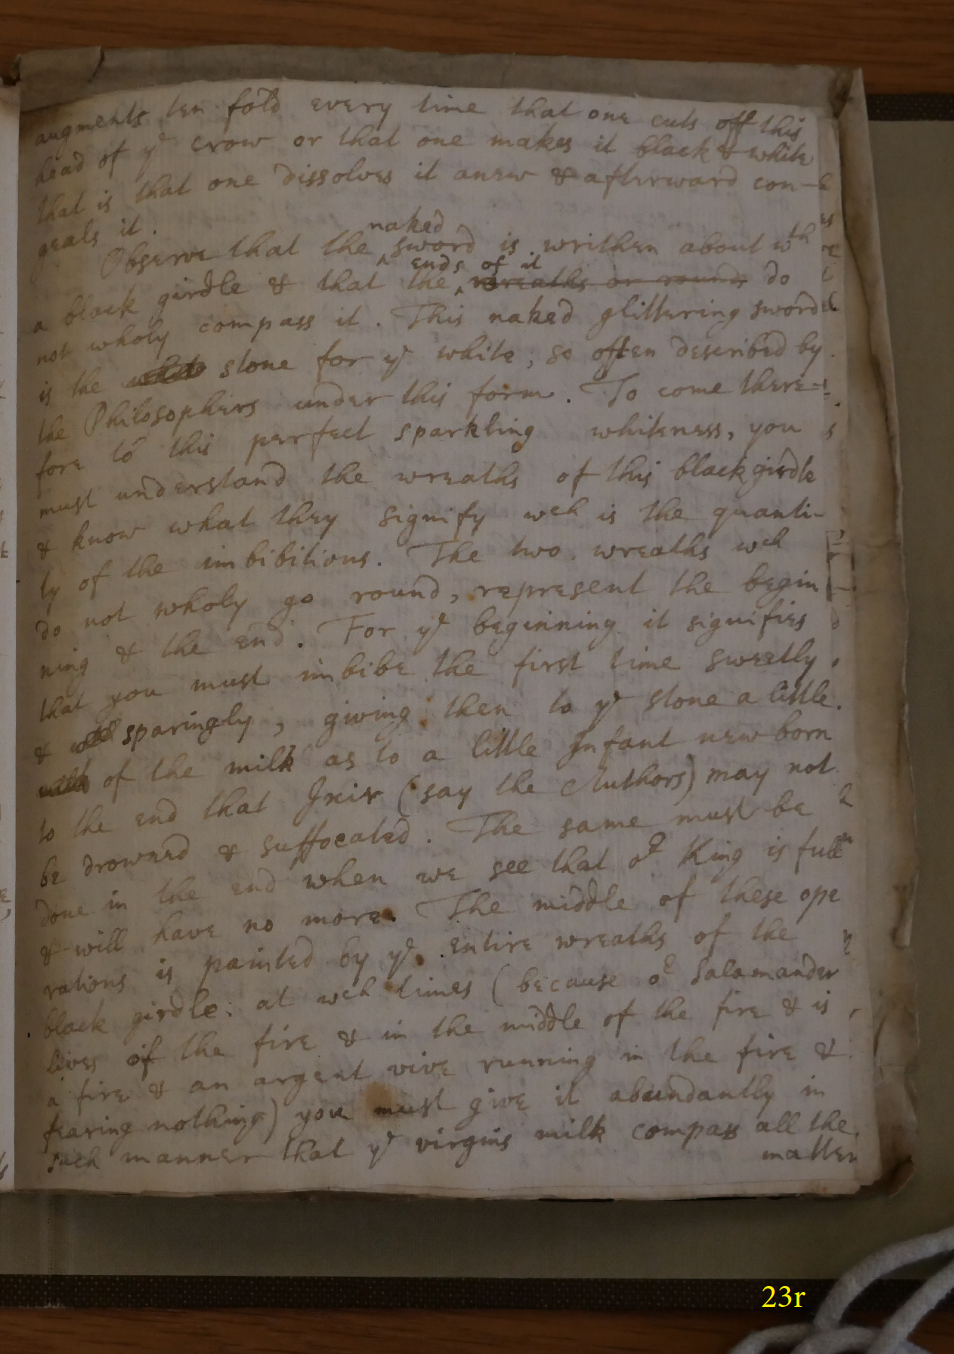 augments ten fold every time that one cuts off this
head of ye crow or that one makes it black & white
that is that one dissolves it anew & afterward con-
geals it.
naked
Observe that the sword is writhen about wth
ends of it
a black girdle & that the wreaths or round do
not wholy compass it. This naked glittering sword
is the white stone for ye white, so often described by
the Philosophers under this form. To come there-
fore to this perfect sparkling whiteness, you
must understand the wreaths of this black girdle
& know what they signify wch is the quanti-
ty of the imbibitions. The two wreaths wch
do not wholy go round, represent the begin
ning & the end. For ye beginning it signifies
that you must imbibe the first time sweetly
& sparingly, giving then to ye stone a little.
milk of the milk as to a little Infant new born
to the end that Jxir (say the Authors) may not
be drowned & suffocated. The same must be
done in the end when we see that or King is full
& will have no more. The middle of these ope
rations is painted by ye entire wreaths of the
black girdle: at wch times (because or Salamander
lives of the fire & in the middle of the fire & is
a fire & an argent vive running in the fire &
fearing nothing) you must give it abundantly in
such manner that ye virgins milk compass all the
matter
23r